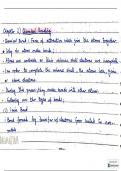 Chapter 3) Chemical Bonding
• Chemical Bond : Force of attraction which joins the atoms together
• Why do atoms make bonds :
• Atoms are unstable as their valence shell electrons are incomplete.
• In order to complete the valence shell, the atoms lose, gain
or share electrons.
• During this process they make bonds with other atoms.
• Following are the types of bonds :
(1) Ionic Bond
• Bond formed by transfer of electrons from metal to non-
metal